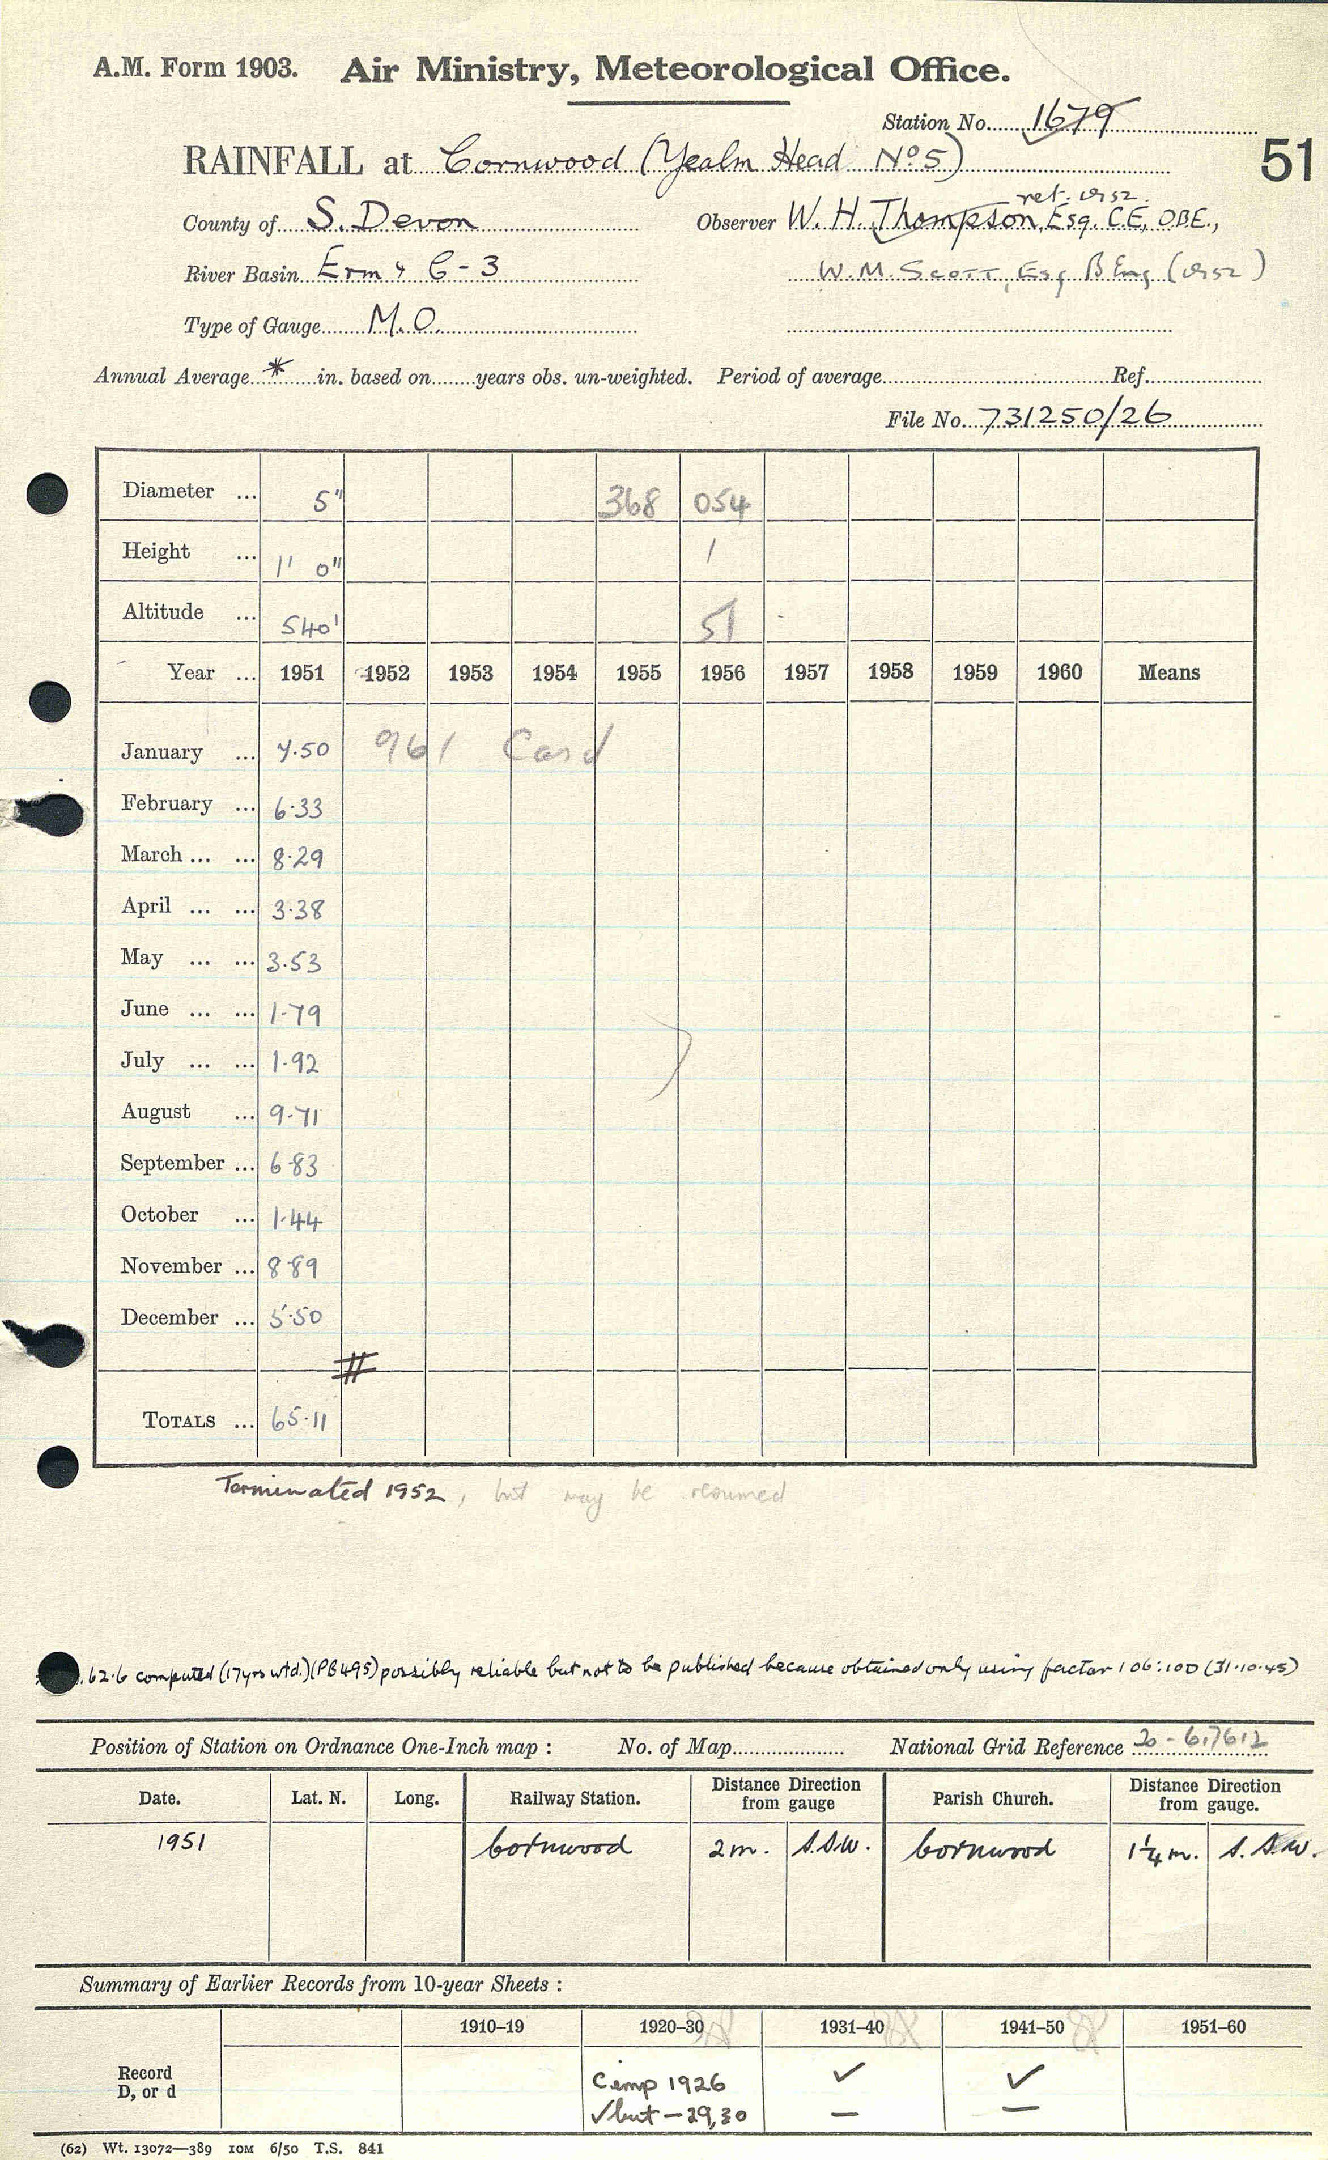 A.M. Form 1903. Air Ministry, Meteorological Office.
Station No. 1679
RAINFALL at Cornwood (Yealm Head No 5)
51
County of S. Devon
Observer W. H. Thompson, Esq. C.E., O.B.E.,
River Basin Erm & 6-3
W.M. Scott, Esq B Eng
Type of Gauge M.O.
Annual Average * in. based on years obs. un-weighted. Period of average Ref.
File No. 731250/26
Diameter ... 5" 368 054
Height ... 1' 0" 1
Altitude ... 540' 51
Year ... 1951 1952 1953 1954 1955 1956 1957 1958 1959 1960 Means
January ... 7.50 961 Card
February ... 6.33
March ... ... 8.29
April ... ... 3.38
May ... ... 3.53
June ... ... 1.79
July ... ... 1.92
August ... 9.71
September ... 6.83
October ... 1.44
November ... 8.89
December ... 5.50
#
TOTALS ... 65.11
Terminated 1952, but may be resumed
62.6 computed (17yrs wtd.) (PB495) possibly reliable but not to be published because obtained only using factor 106:100 (31.10.45)
Position of Station on Ordnance One-Inch map : No. of Map National Grid Reference 20-617612
Date. Lat. N. Long. Railway Station. Distance Direction from gauge Parish Church. Distance Direction from gauge.
1951 Cornwood 2 m. S.S.W. Cornwood 1¼ m. S.S.W.
Summary of Earlier Records from 10-year Sheets :
1910–19 1920–30 1931–40 1941–50 1951–60
Record D, or d
Comp 1926 ✓ ✓
✓ but – 29,30 – –
(62) Wt. 13072—389 10M 6/50 T.S. 841